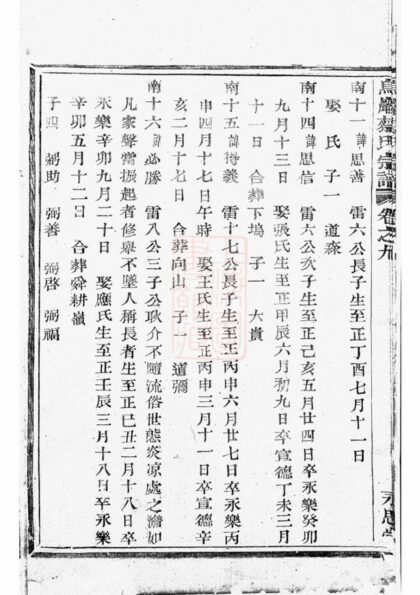 氏宗譜 卷之九
南十一諱思善 雷六公長子生至正丁酉七月十一日
娶 氏 子一 道森
南十四諱思信 雷六公次子生至正己亥五月廿四日卒永樂癸卯
九月十三日 娶張氏生至正甲辰六月初九日卒宣德丁未三月
十一日 合葬下塢 子一 大貴
南十五諱得義 雷十七公長子生至正丙申六月廿七日卒永樂丙
申四月十七日午時 娶王氏生至正丙申三月十一日卒宣德辛
亥二月十七日 合葬向山 子一 道彌
南十六諱必勝 雷八公三子公耿介不隨流俗世態炎凉處之澹如
凡家聲當振起者修舉不墜人稱長者生至正己丑二月十八日卒
永樂辛卯九月二十日 娶應氏生至正壬辰三月十八日卒永樂
辛卯五月十二日 合葬舜耕嶺
子四 弼助 弼善 弼啓 弼福